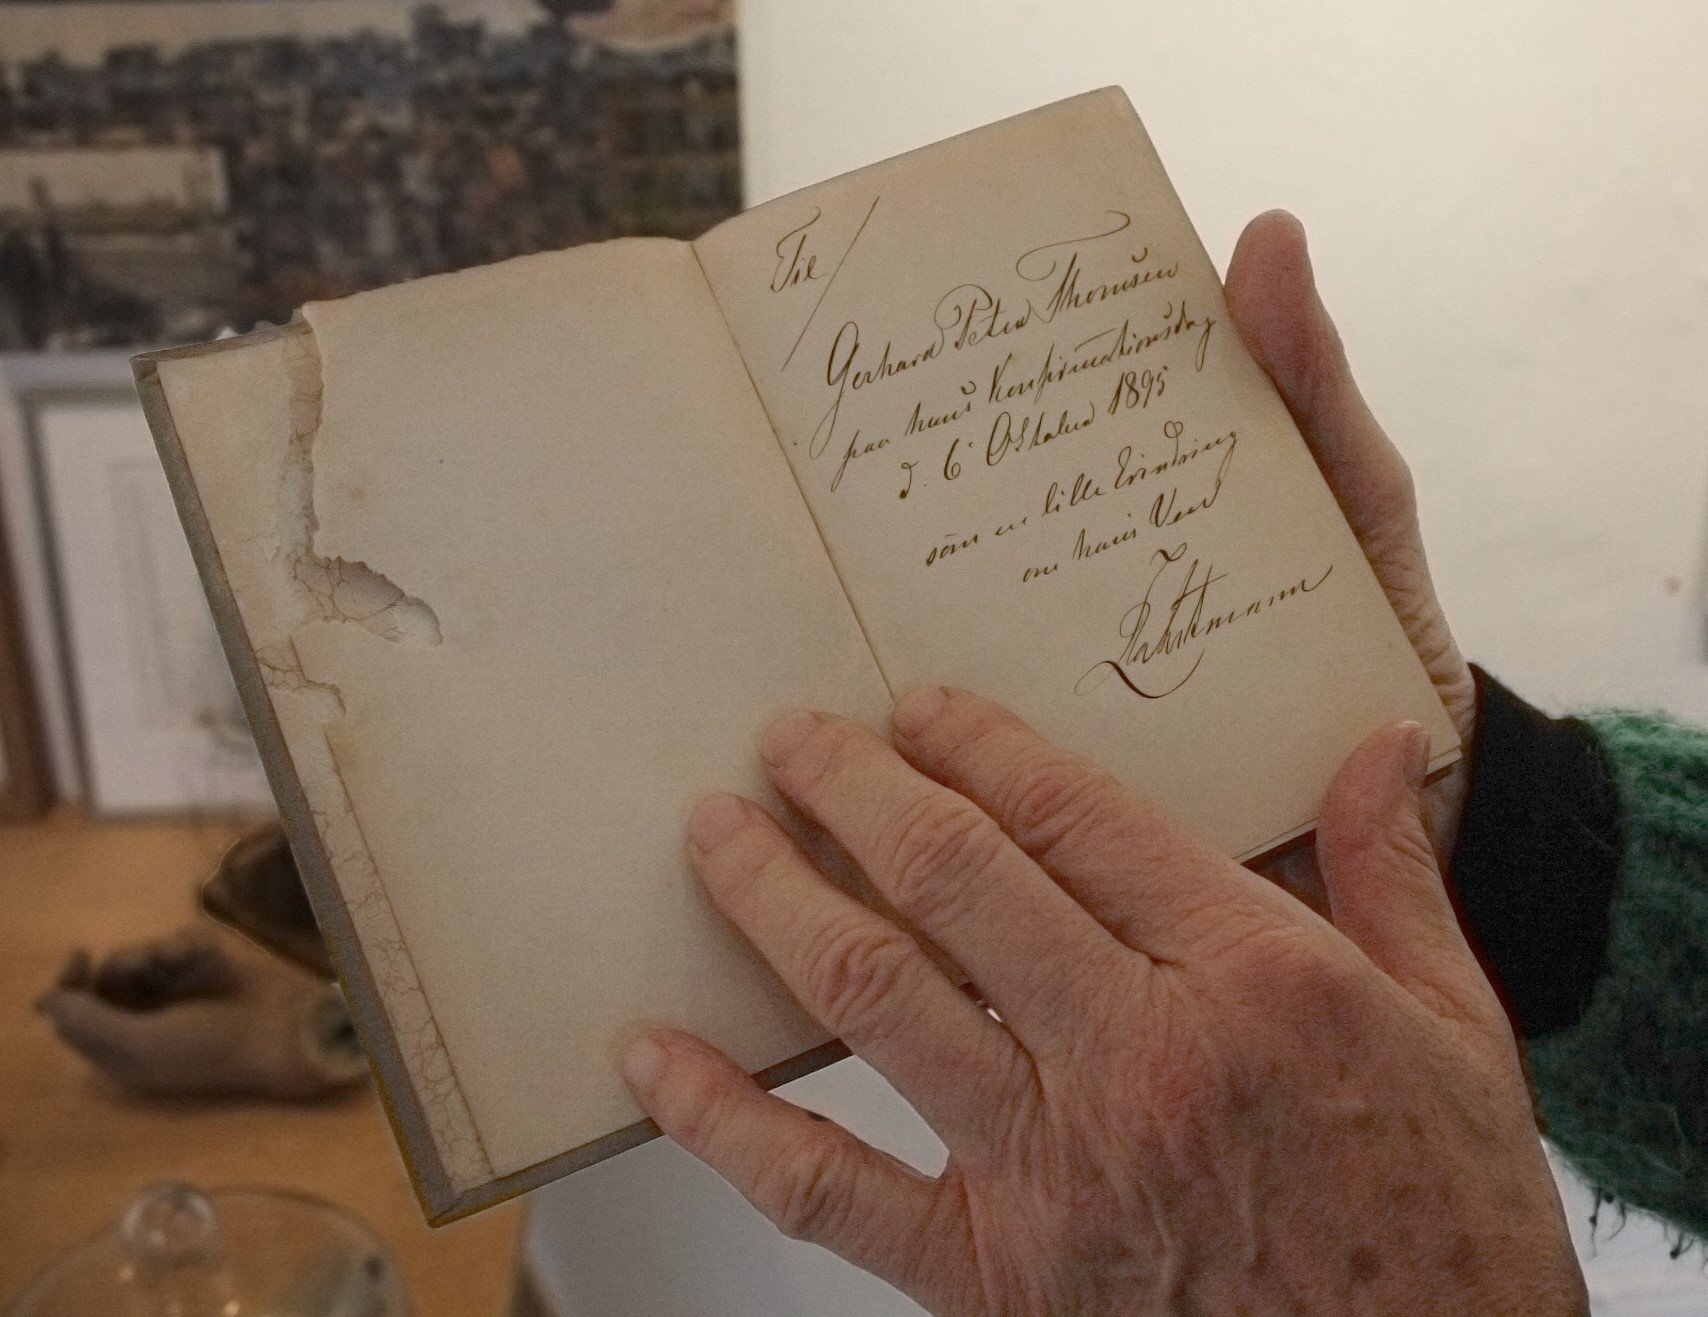 Til
Gerhard Peter Thomsen
paa hans Konfirmationsdag
d. 6' Oktober 1895
som en lille Erindring
om hans Ven